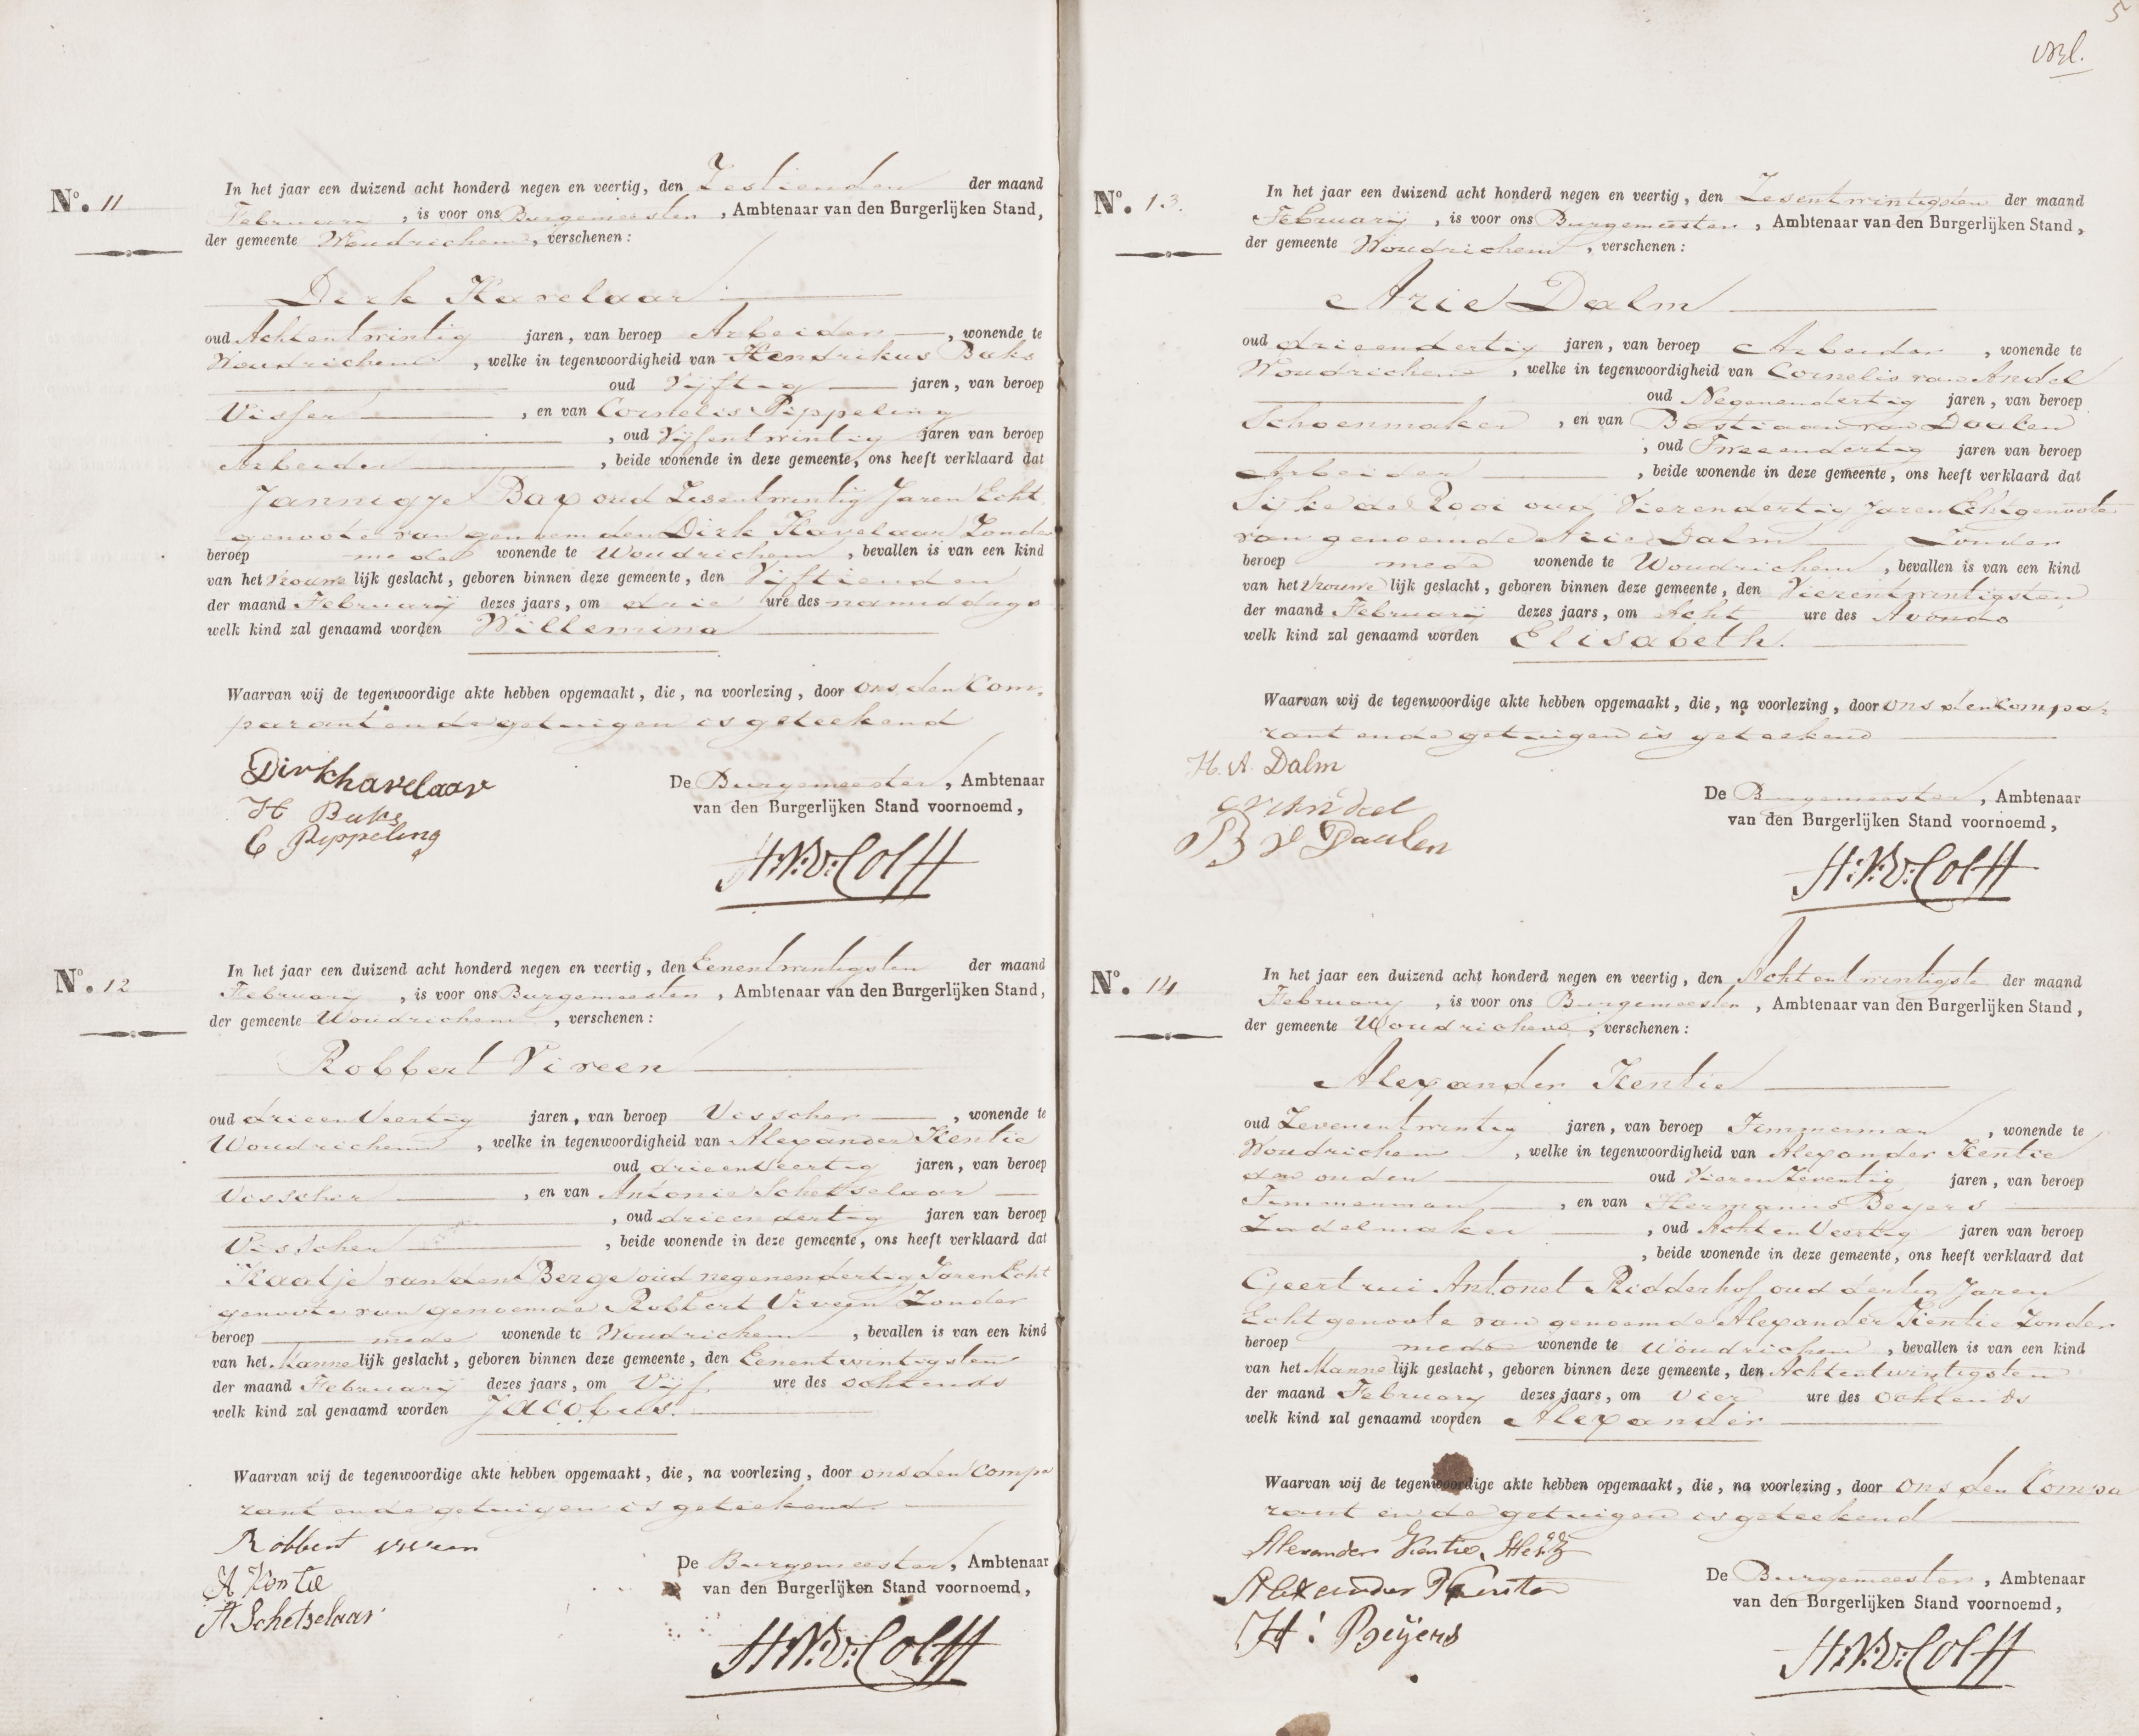 No. 11
In het jaar een duizend acht honderd negen en veertig, den Zestienden der maand
February, is voor ons Burgemeester, Ambtenaar van den Burgerlijken Stand,
der gemeente Woudrichem, verschenen:
Dirk Havelaar
oud Achtentwintig jaren, van beroep Arbeider, wonende te
Woudrichem, welke in tegenwoordigheid van Hendrikus Buks
oud Vijftig jaren, van beroep
Visser, en van Cornelis Pippeling
, oud Vijfentwintig jaren van beroep
Arbeider, beide wonende in deze gemeente, ons heeft verklaard dat
Jannigje Bax oud Zesentwintig Jaren Echt
genoote van genoemden Dirk Havelaar Zonder
beroep mede wonende te Woudrichem, bevallen is van een kind
van het Vrouwelijk geslacht, geboren binnen deze gemeente, den Vijftienden
der maand Februarij dezes jaars, om drie ure des namiddags
welk kind zal genaamd worden Willemina
Waarvan wij de tegenwoordige akte hebben opgemaakt, die, na voorlezing, door ons den Com-
parant en de getuigen is geteekend
Dirk havelaar
H Buks
C Pippeling
De Burgemeester, Ambtenaar
van den Burgerlijken Stand voornoemd,
H:N:V:Colff
No. 12
In het jaar een duizend acht honderd negen en veertig, den Eenentwintigsten der maand
February, is voor ons Burgemeester, Ambtenaar van den Burgerlijken Stand,
der gemeente Woudrichem, verschenen:
Robbert Viveen
oud drieenVeertig jaren, van beroep Visscher, wonende te
Woudrichem, welke in tegenwoordigheid van Alexander Kentie
oud drieenVeertig jaren, van beroep
Visscher, en van Antonie Schetselaar
, oud drieendertig jaren van beroep
Visscher, beide wonende in deze gemeente, ons heeft verklaard dat
Kaatje van den Berge oud negenendertig Jaren Echt
genoote van genoemde Robbert Viveen Zonder
beroep mede wonende te Woudrichem, bevallen is van een kind
van het Mannelijk geslacht, geboren binnen deze gemeente, den Eenentwintigsten
der maand Februarij dezes jaars, om Vijf ure des ochtends
welk kind zal genaamd worden Jacobus.
Waarvan wij de tegenwoordige akte hebben opgemaakt, die, na voorlezing, door ons den Compa
rant en de getuigen is geteekend.
Robbert viveen
A Kentie
A Schetselaar
De Burgemeester, Ambtenaar
van den Burgerlijken Stand voornoemd,
H:N:V:Colff
5
No. 13.
In het jaar een duizend acht honderd negen en veertig, den Zesentwintigsten der maand
Februarij, is voor ons Burgemeester, Ambtenaar van den Burgerlijken Stand,
der gemeente Woudrichem, verschenen:
Arie Dalm
oud drieendertig jaren, van beroep Arbeider, wonende te
Woudrichem, welke in tegenwoordigheid van Cornelis van Andel
oud Negenendertig jaren, van beroep
Schoenmaker, en van Bastiaan van Daalen
, oud Tweeendertig jaren van beroep
Arbeider, beide wonende in deze gemeente, ons heeft verklaard dat
Sijke de Rooi oud Vierendertig Jaren Echtgenoote
van genoemde Arie Dalm Zonder
beroep mede wonende te Woudrichem, bevallen is van een kind
van het Vrouwelijk geslacht, geboren binnen deze gemeente, den Vierentwintigsten
der maand Februarij dezes jaars, om Acht ure des Avonds
welk kind zal genaamd worden Elisabeth.
Waarvan wij de tegenwoordige akte hebben opgemaakt, die, na voorlezing, door ons den Compa-
rant en de getuigen is geteekend
H. A. Dalm
B v Daalen
De Burgemeester, Ambtenaar
van den Burgerlijken Stand voornoemd,
H:N:V:Colff
No. 14
In het jaar een duizend acht honderd negen en veertig, den Achtentwintigste der maand
February, is voor ons Burgemeester, Ambtenaar van den Burgerlijken Stand,
der gemeente Woudrichem, verschenen:
Alexander Kentie
oud Zevenentwintig jaren, van beroep Timmerman, wonende te
Woudrichem, welke in tegenwoordigheid van Alexander Kentie
den ouden oud VierenZeventig jaren, van beroep
Timmerman, en van Hermanus Beyers
Zadelmaker, oud AchtenVeertig jaren van beroep
, beide wonende in deze gemeente, ons heeft verklaard dat
Geertrui Antonet Ridderhof oud dertig Jaren
Echtgenoote van genoemde Alexander Kentie Zonder
beroep mede wonende te Woudrichem, bevallen is van een kind
van het Mannelijk geslacht, geboren binnen deze gemeente, den Achtentwintigsten
der maand February dezes jaars, om Vier ure des ochtends
welk kind zal genaamd worden Alexander
Waarvan wij de tegenwoordige akte hebben opgemaakt, die, na voorlezing, door ons den Compa
rant en de getuigen is geteekend
Alexander Kentie
Alexander Kentie
H: Beijers
De Burgemeester, Ambtenaar
van den Burgerlijken Stand voornoemd,
H:N:V:Colff